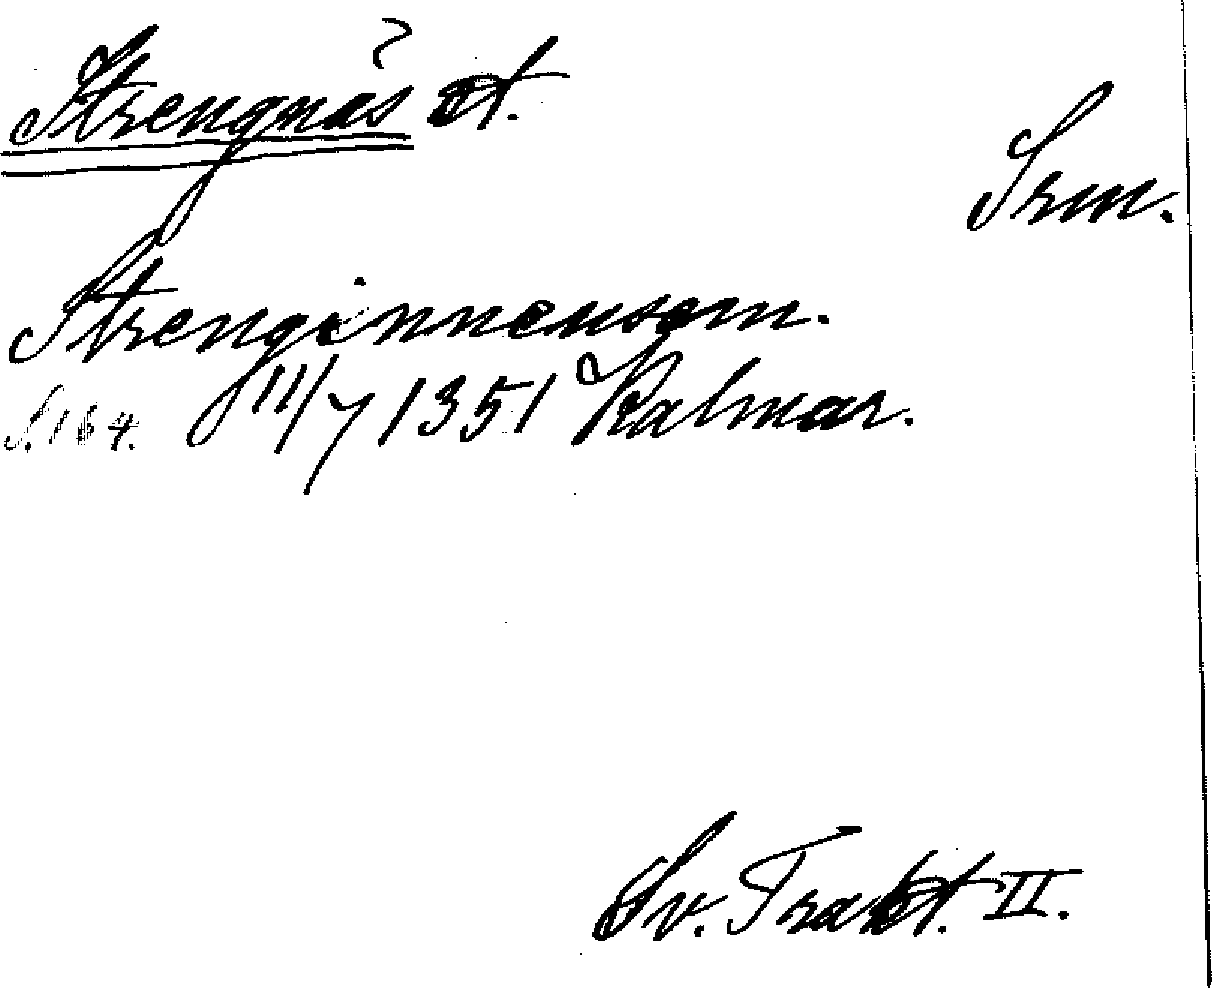 Strengnäs st.
Srm.
Strenginnensem.
S. 164. 11/7 1351 Kalmar.
Sv. Trakt. II.